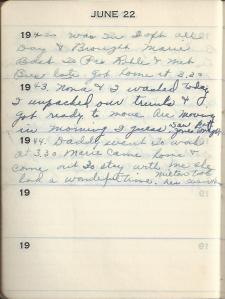 JUNE 22
1942. Was in Taft all
Day & Brought Marie
Back to Pco Roble & met
Bus late. Got home at 3.30
1943. Nona & I washed today
I unpacked our trunks & I
got ready to move. Are moving
in morning I guess. Saw Betty
Jones tonight
1944. Daddy went to work
at 3.30. Marie came home &
come out to stay with me she
had a wonderful time. Milton took
her
19
19